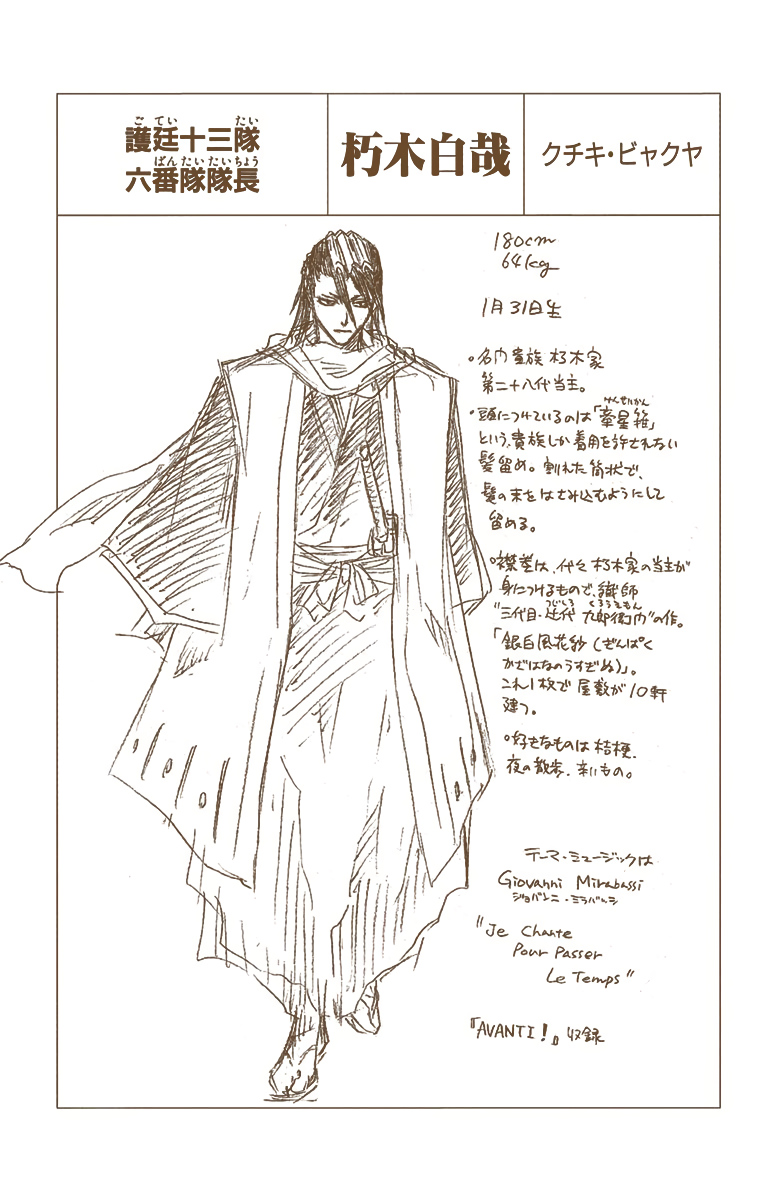 護廷十三隊
六番隊隊長
朽木白哉
クチキ・ビャクヤ
180cm
64kg
1月31日生
・名門貴族 朽木家
第二十八代当主。
・頭につけているのは「牽星箝」
という、貴族しか着用を許されない
髪留め。割れた筒状で、
髪の束をはさみ込むようにして
留める。
・襟巻は、代々朽木家の当主が
身につけるもので、織師
"三代目・辻代 九郎衛門"の作。
「銀白風花紗(ぎんぱく
かざはなのうすぎぬ)」。
これ1枚で屋敷が10軒
建つ。
・好きなものは桔梗、
夜の散歩、辛いもの。
テーマ・ミュージックは
Giovanni Mirabassi
ジョバンニ・ミラバッシ
"Je Chante
Pour Passer
Le Temps"
『AVANTI!』収録